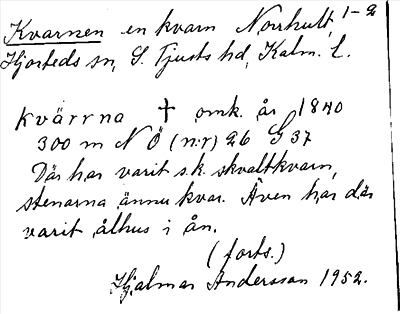 Kvarnen en kvarn Norrhult 1-2
Hjorteds sn, S. Tjusts hd, Kalm. l.
kvärrna † omk. år 1840
300 m N Ö (n:r) 26 G 37
Där har varit s.k. skvaltkvarn,
stenarna ännu kvar. Även har där
varit ålhus i ån.
(forts.)
Hjalmar Andersson 1952.